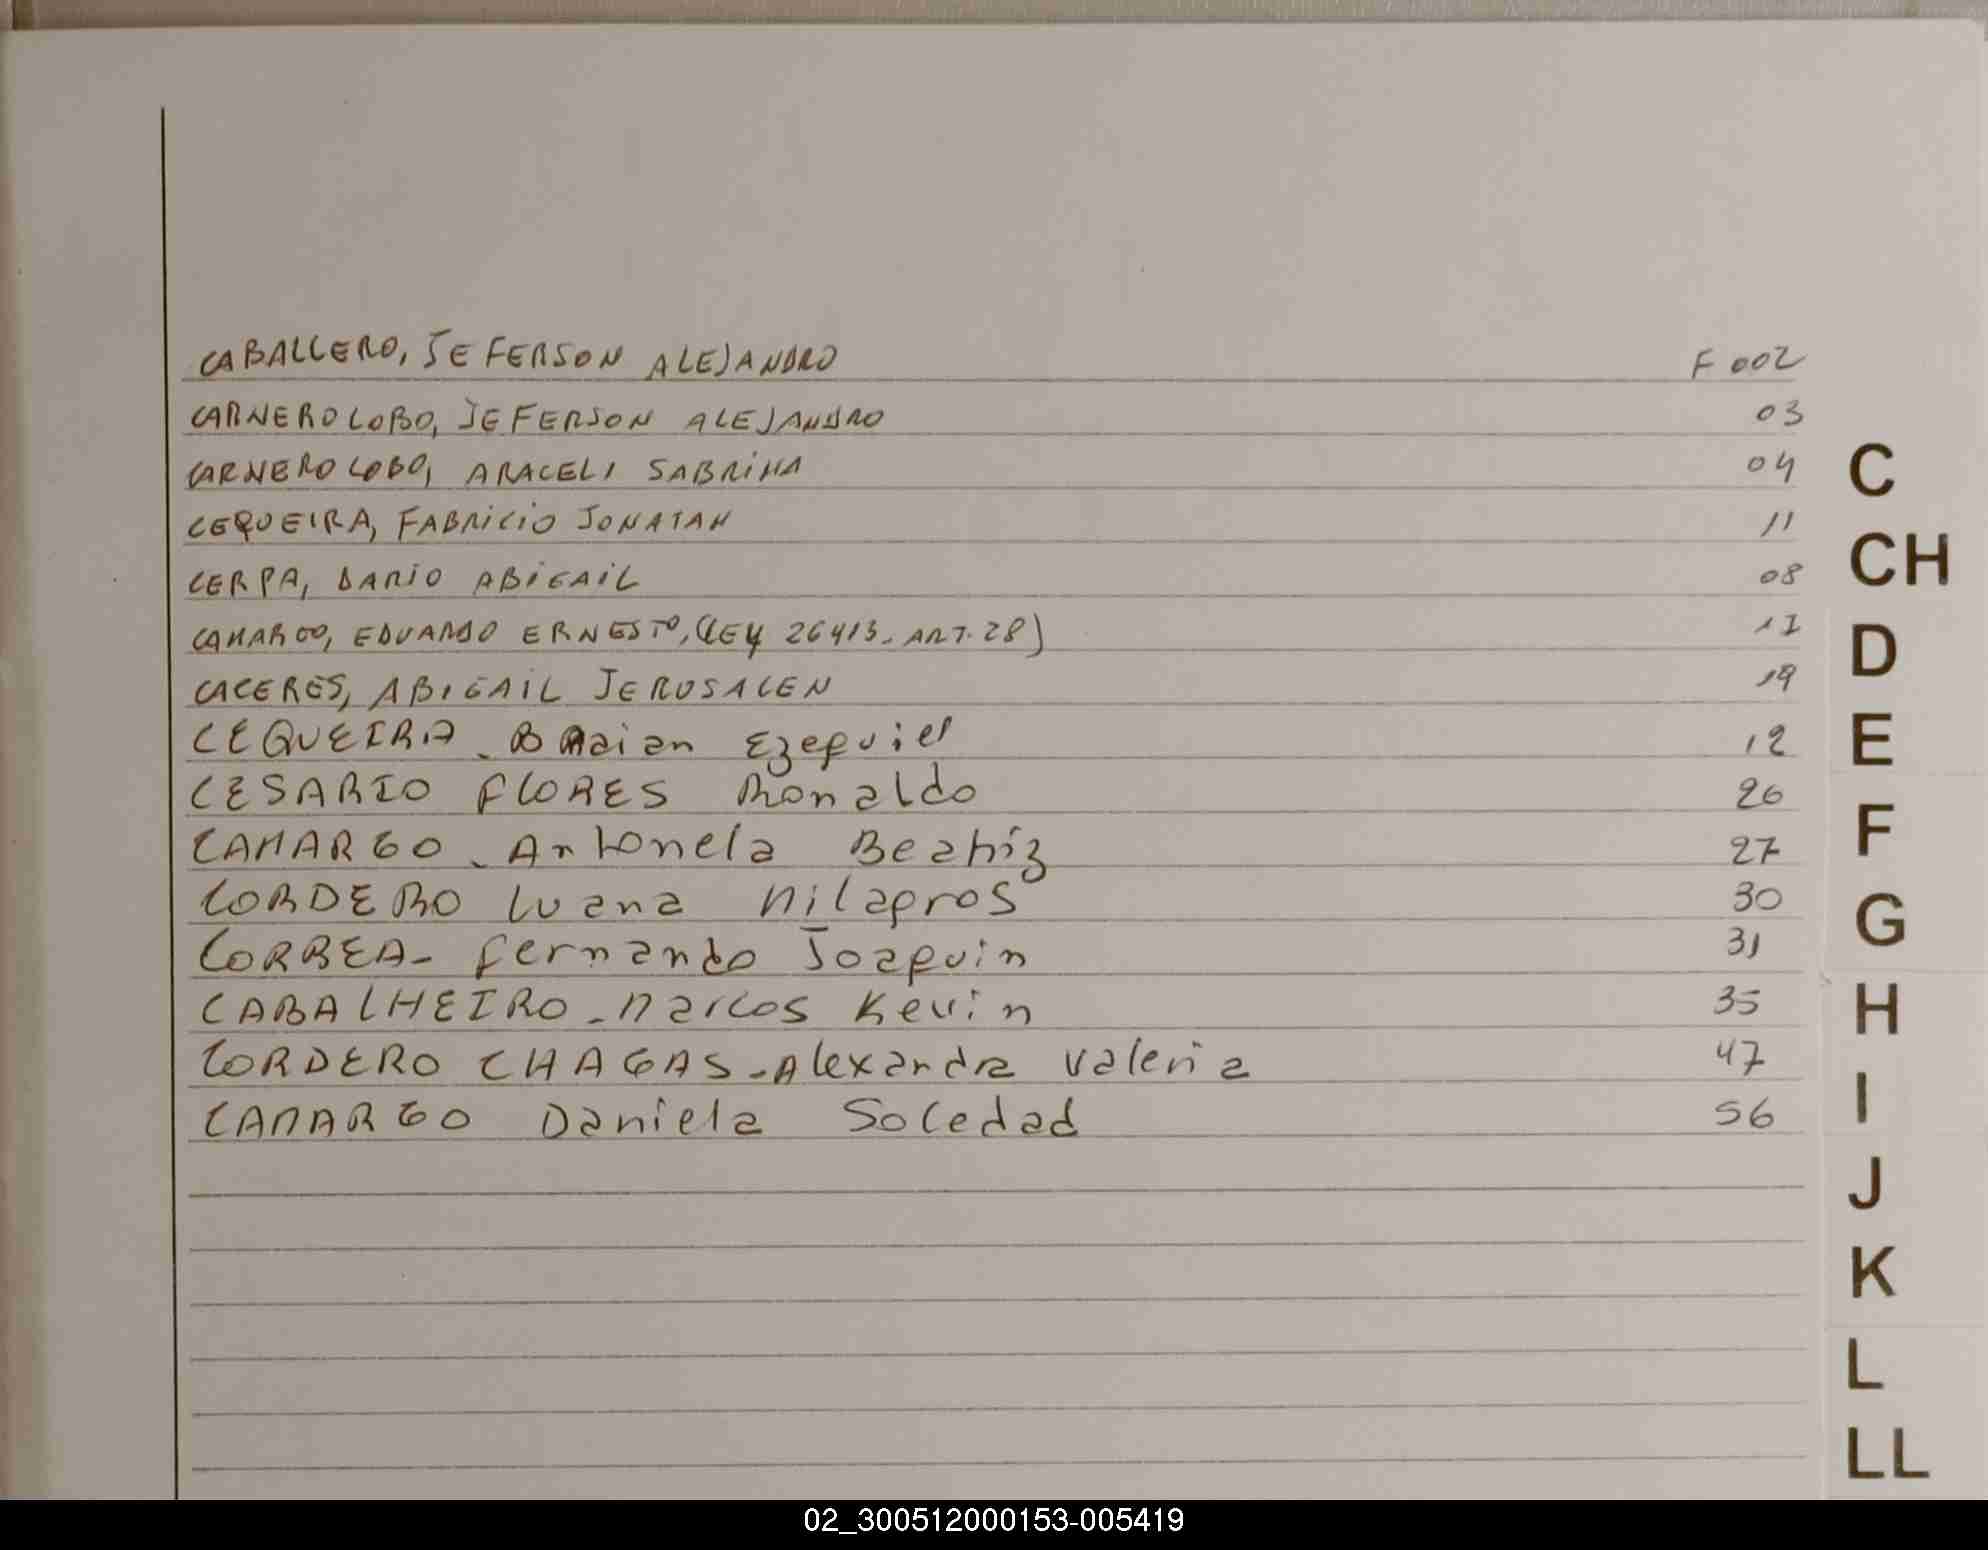 CABALLERO, JEFERSON ALEJANDRO F 002
CARNERO LOBO, JEFERSON ALEJANDRO 03
CARNERO LOBO, ARACELI SABRINA 04
CEQUEIRA, FABRICIO JONATAN 11
CERPA, DARIO ABIGAIL 08
CAMARGO, EDUARDO ERNESTO, (LEY 26413. ART. 28) 17
CACERES, ABIGAIL JERUSALEN 19
CEQUEIRA. BRaian Ezequiel 12
CESARIO FLORES Ronaldo 26
CAMARGO. Antonela Beatriz 27
CORDERO Luana Milagros 30
CORREA- Fernando Joaquin 31
CABALHEIRO. Marcos Kevin 35
CORDERO CHAGAS. Alexandra Valeria 47
CAMARGO Daniela Soledad 56
C
CH
D
E
F
G
H
I
J
K
L
LL
02_300512000153-005419